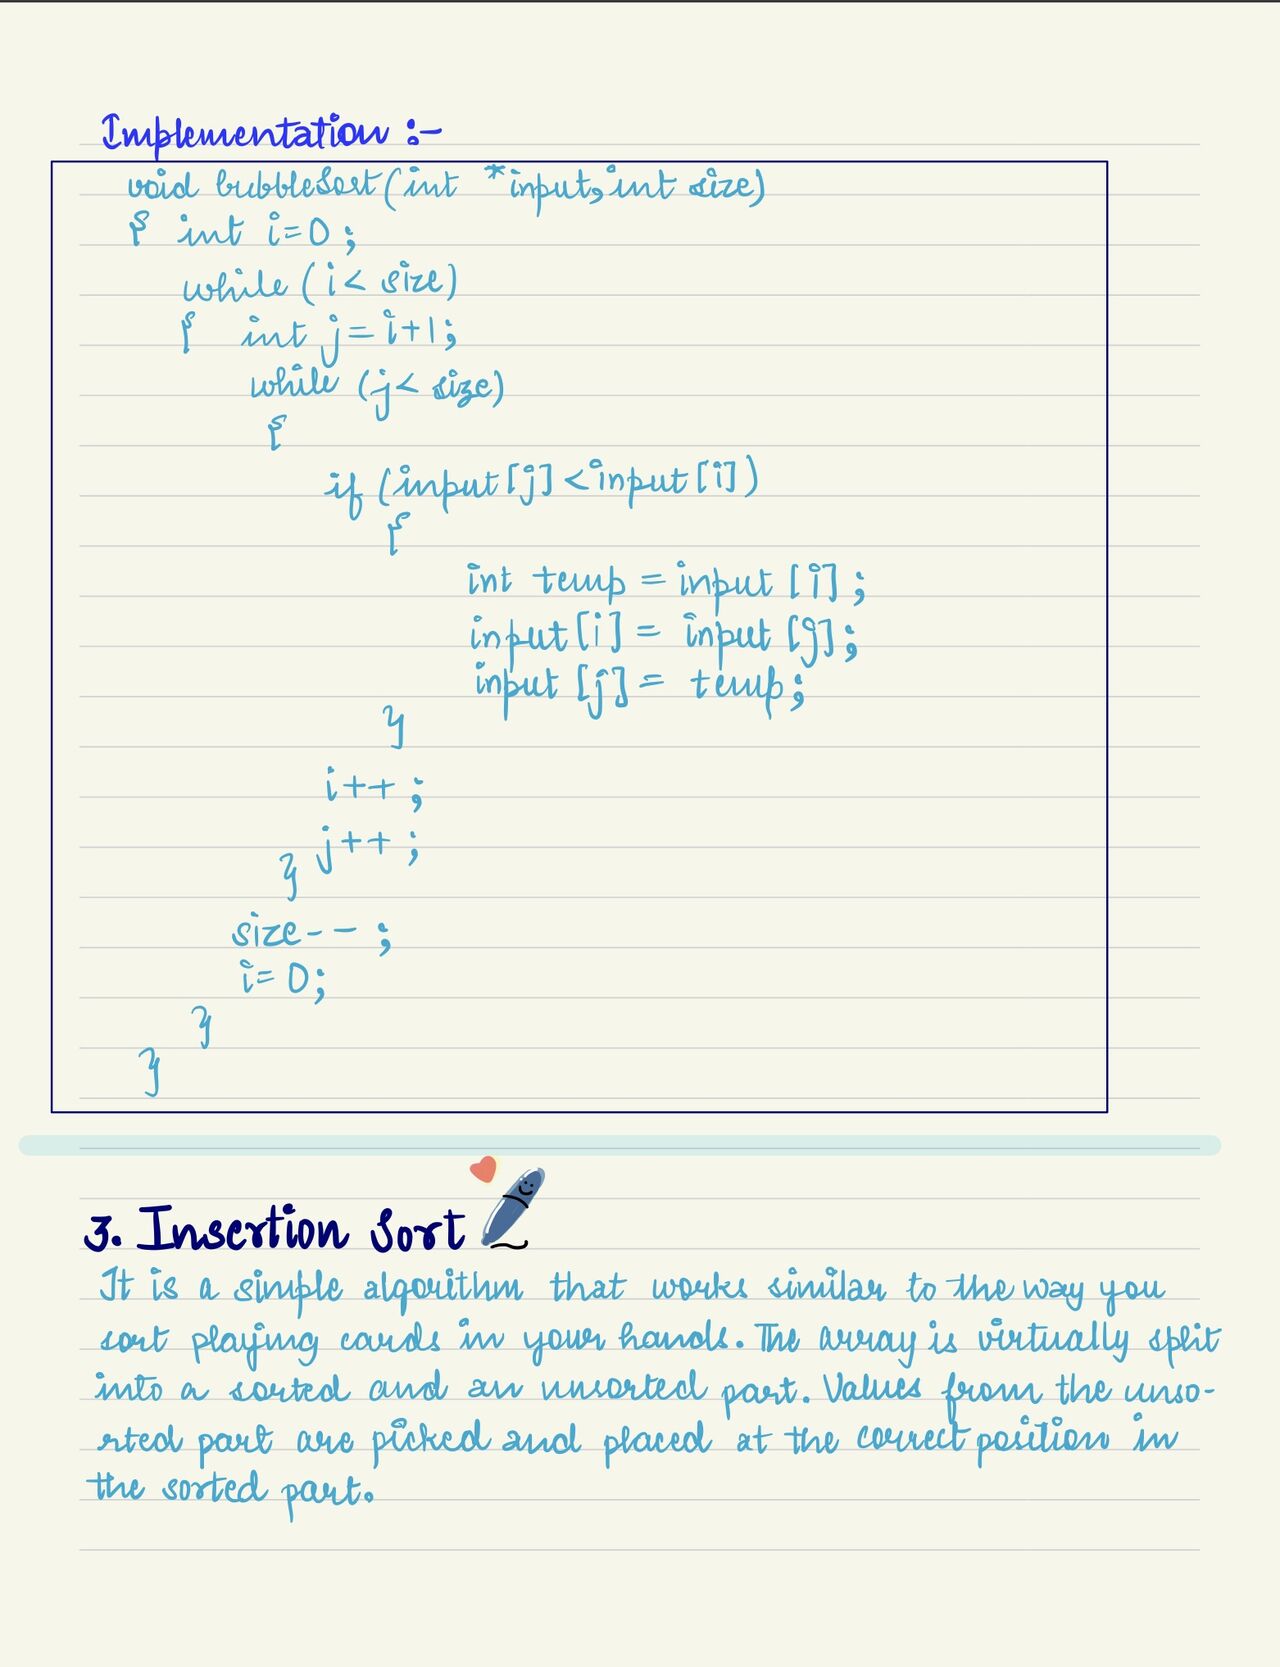 Implementation :-
void bubbleSort(int *input, int size)
{ int i=0;
while (i< size)
{ int j=i+1;
while (j< size)
{
if (input[j]<input[i])
{
int temp = input [i];
input[i] = input [j];
input [j] = temp;
}
i++;
j++;
}
size--;
i=0;
}
}
3. Insertion Sort
It is a simple algorithm that works similar to the way you
sort playing cards in your hands. The array is virtually split
into a sorted and an unsorted part. Values from the unso-
rted part are picked and placed at the correct position in
the sorted part.